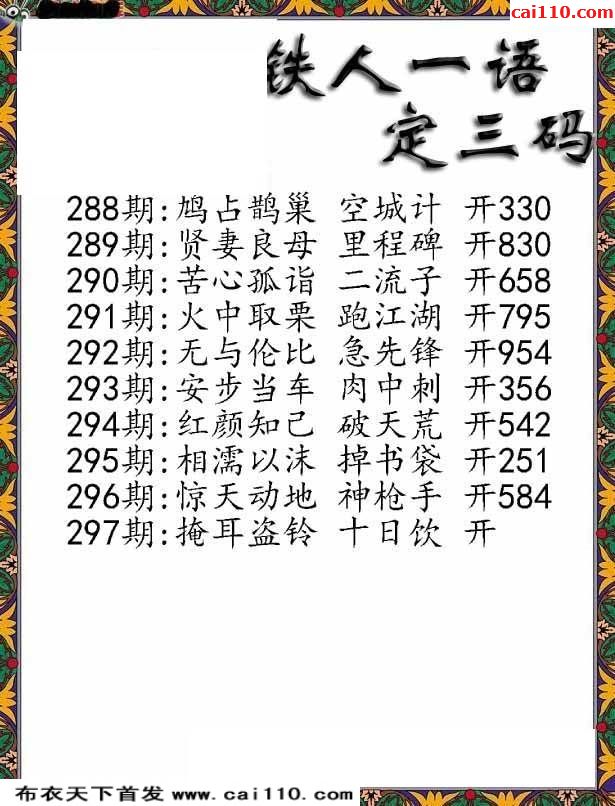 cai110.com
铁人一语
定三码
288期:鸠占鹊巢 空城计 开330
289期:贤妻良母 里程碑 开830
290期:苦心孤诣 二流子 开658
291期:火中取栗 跑江湖 开795
292期:无与伦比 急先锋 开954
293期:安步当车 肉中刺 开356
294期:红颜知己 破天荒 开542
295期:相濡以沫 掉书袋 开251
296期:惊天动地 神枪手 开584
297期:掩耳盗铃 十日饮 开
布衣天下首发 www.cai110.com